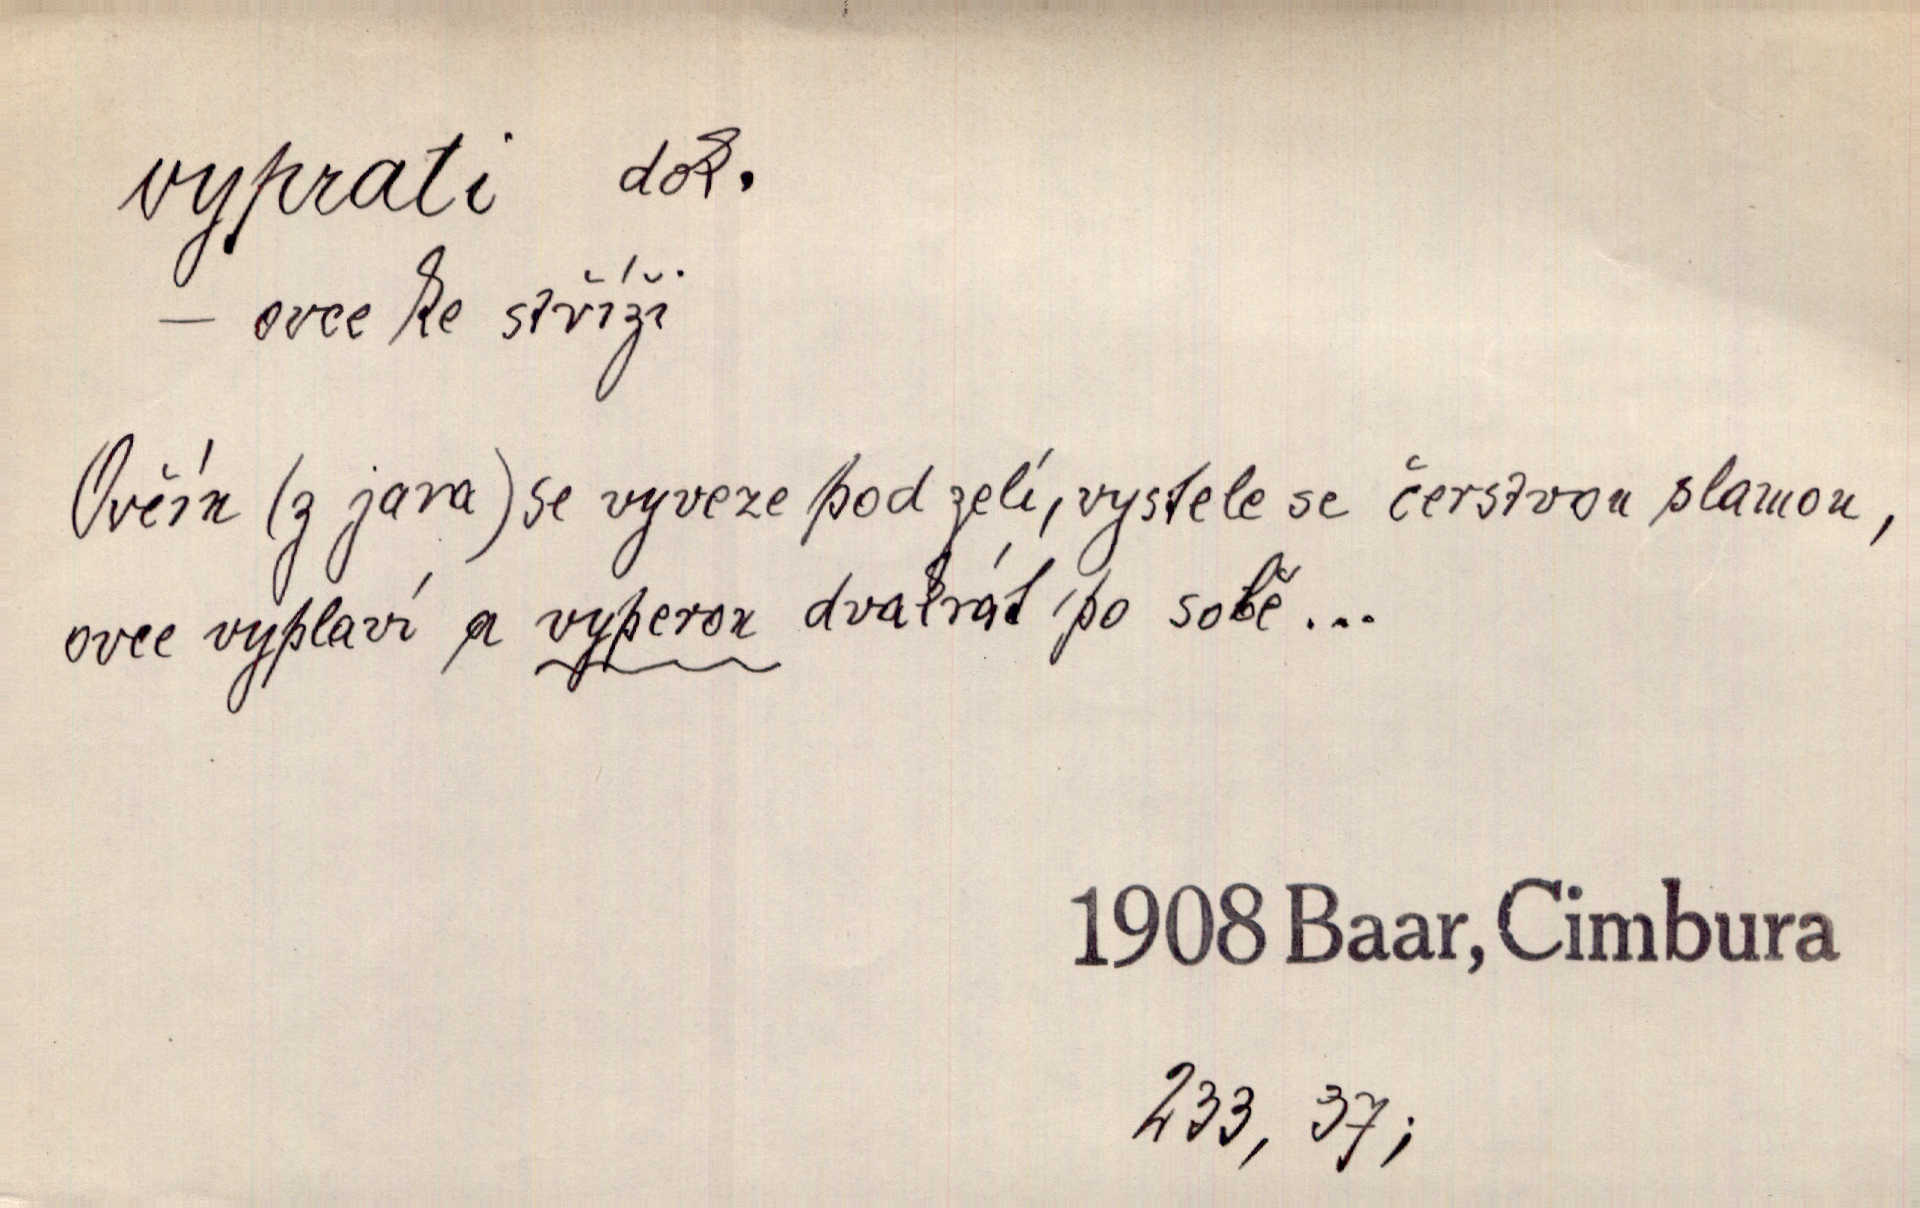 vyprati dok.
– ovce ke stříži
Ovčín (z jara) se vyveze pod zelí, vystele se čerstvou slamou,
ovce vyplaví a vyperou dvakrát po sobě...
1908 Baar, Cimbura
233, 37;